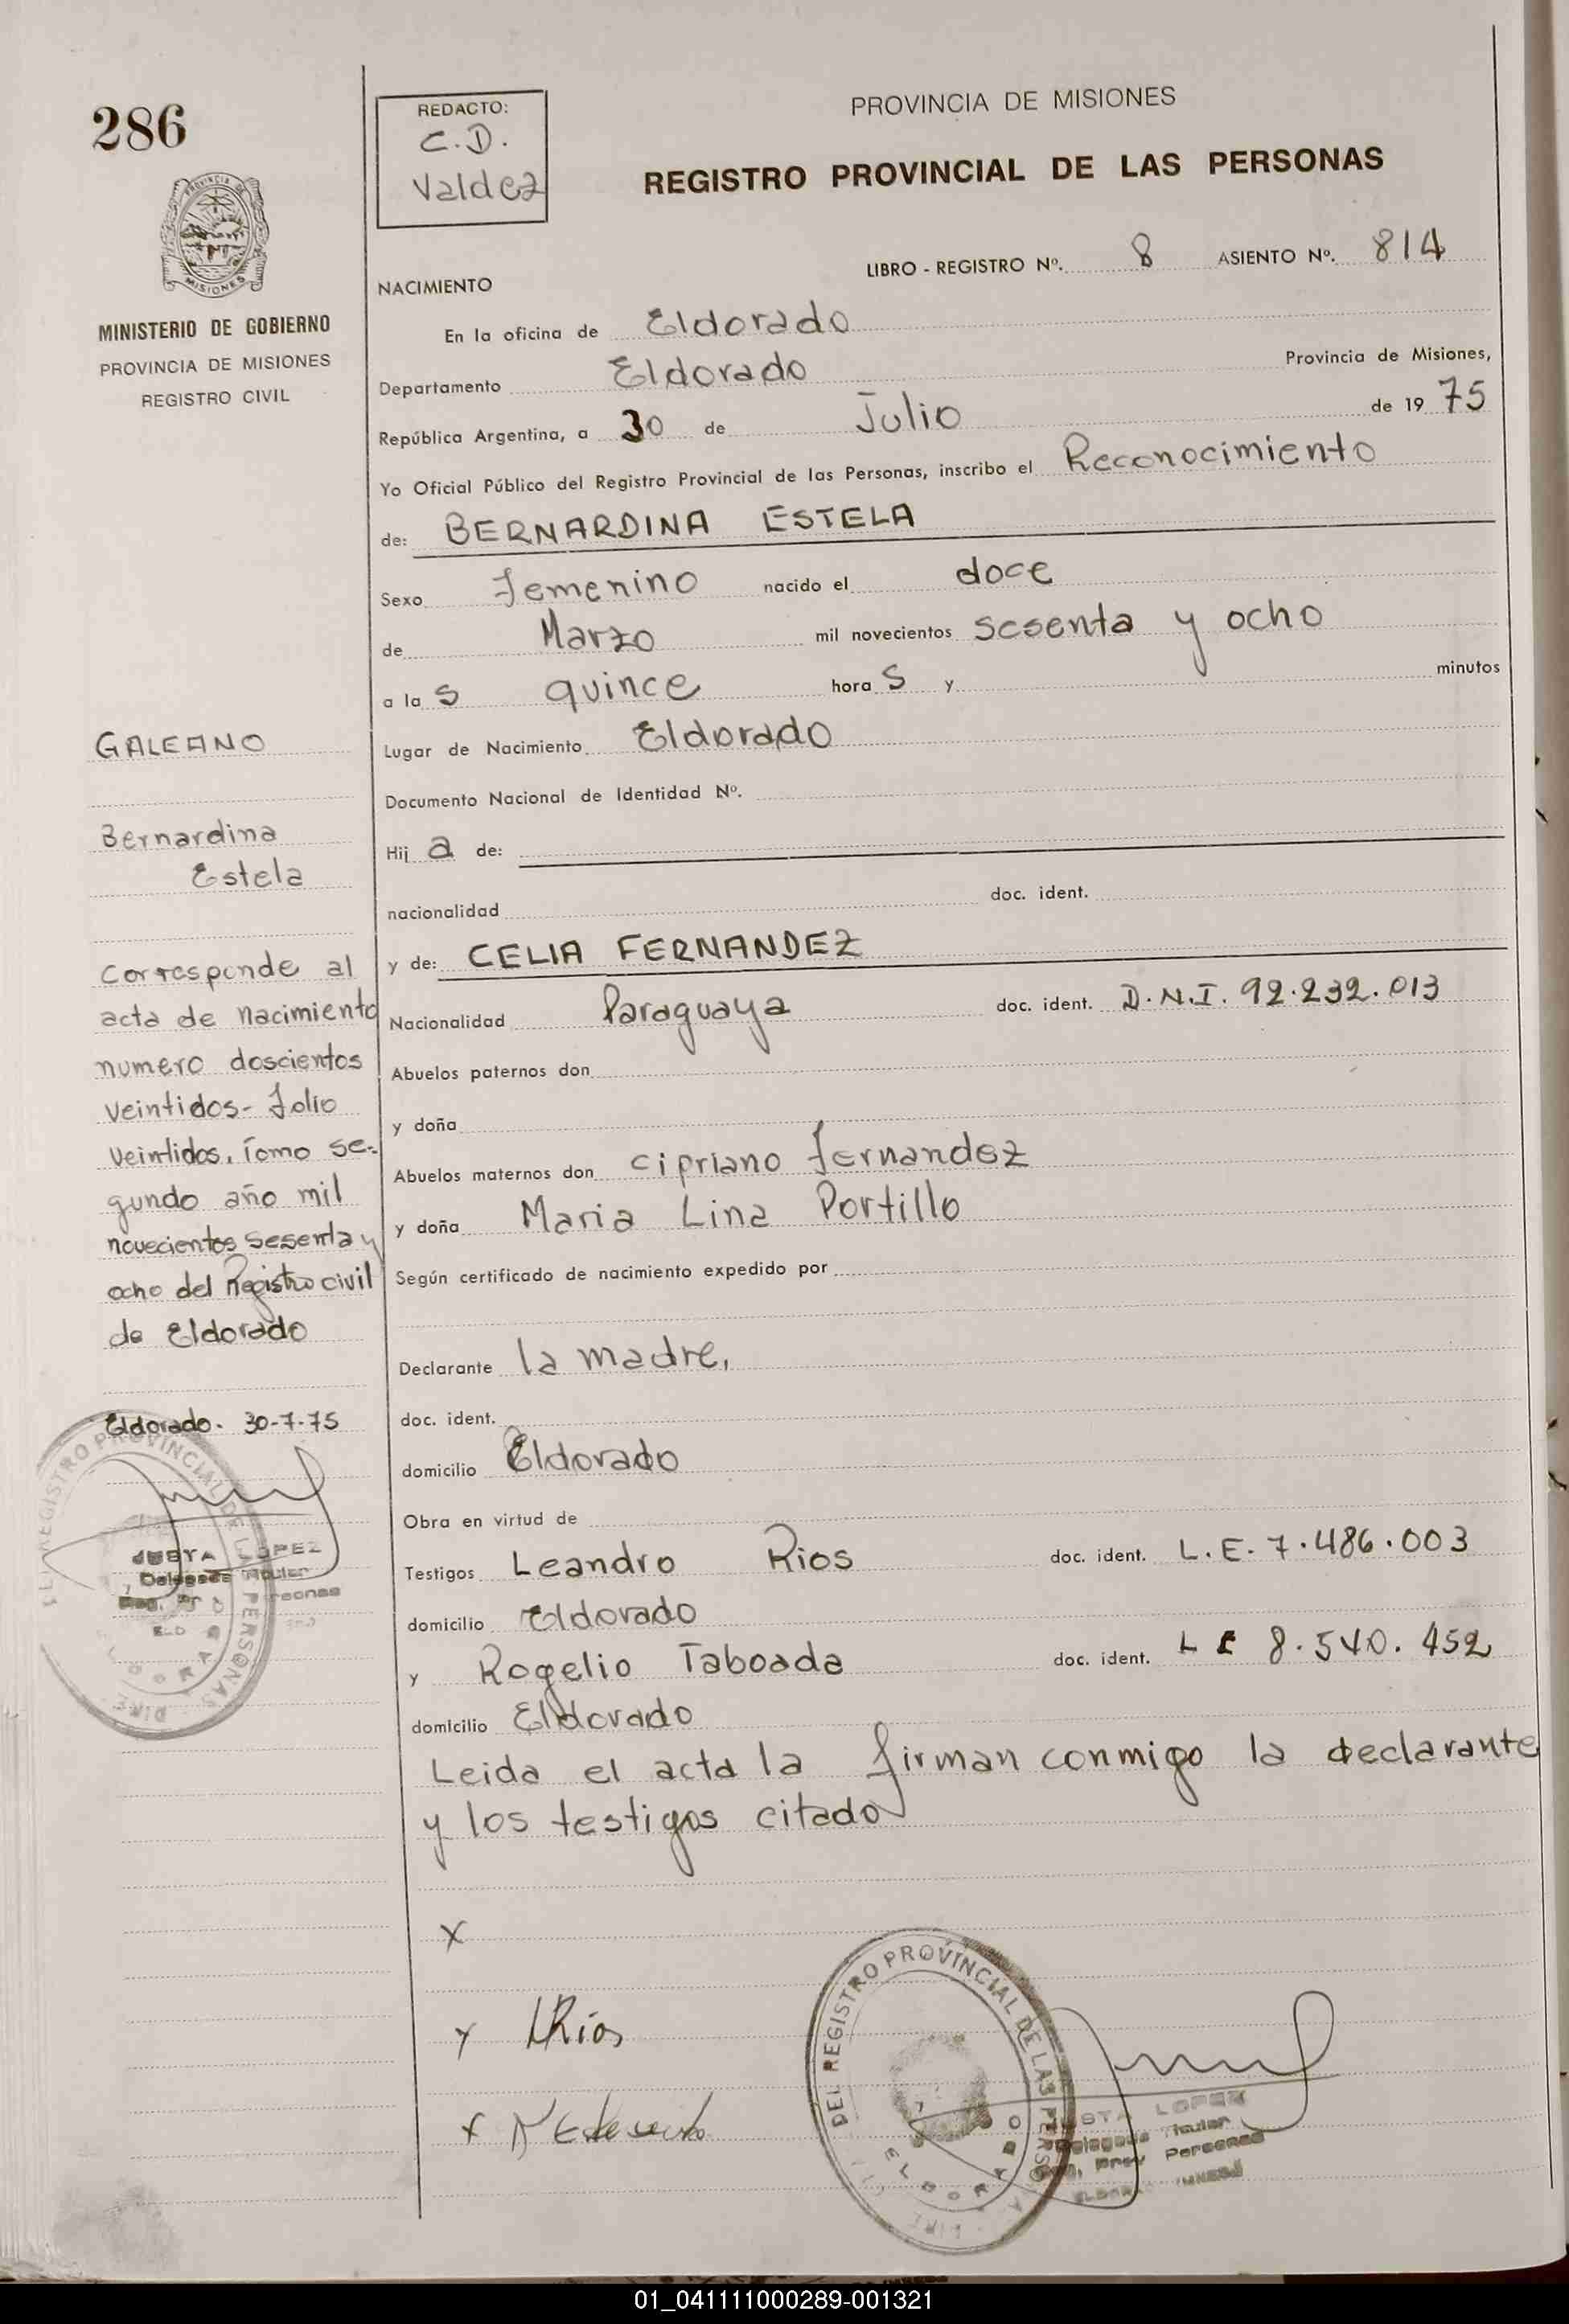 286
REDACTO:
C.D.
Valdez
PROVINCIA DE MISIONES
REGISTRO PROVINCIAL DE LAS PERSONAS
MINISTERIO DE GOBIERNO
PROVINCIA DE MISIONES
REGISTRO CIVIL
LIBRO - REGISTRO Nº. 8 ASIENTO Nº. 814
NACIMIENTO
En la oficina de Eldorado
Departamento Eldorado Provincia de Misiones,
República Argentina, a 30 de Julio de 19 75
Yo Oficial Público del Registro Provincial de las Personas, inscribo el Reconocimiento
de: BERNARDINA ESTELA
Sexo Femenino nacido el doce
de Marzo mil novecientos sesenta y ocho
a la s quince hora s y minutos
Lugar de Nacimiento Eldorado
Documento Nacional de Identidad Nº.
Hij a de:
nacionalidad doc. ident.
y de: CELIA FERNANDEZ
Nacionalidad Paraguaya doc. ident. D.N.I. 92.232.013
Abuelos paternos don
y doña
Abuelos maternos don cipriano Fernandez
y doña Maria Lina Portillo
Según certificado de nacimiento expedido por
Declarante la madre,
doc. ident.
domicilio Eldorado
Obra en virtud de
Testigos Leandro Rios doc. ident. L.E. 7.486.003
domicilio Eldorado
y Rogelio Taboada doc. ident. L E 8.540.452
domicilio Eldorado
Leida el acta la firman conmigo la declarante
y los testigos citado
X
x LRios
x
GALEANO
Bernardina
Estela
Corresponde al
acta de nacimiento
numero doscientos
veintidos- Folio
veintidos, Tomo se-
gundo año mil
novecientos sesenta y
ocho del Registro civil
de Eldorado
Eldorado. 30-7-75
JUSTA LOPEZ
Delegada Titular
REGISTRO PROVINCIAL DE LAS PERSONAS
ELDORADO
DEL REGISTRO PROVINCIAL DE LAS PERSONAS
ELDORADO
LOPEZ
Delegada Titular
Reg. Prov Personas
01_041111000289-001321